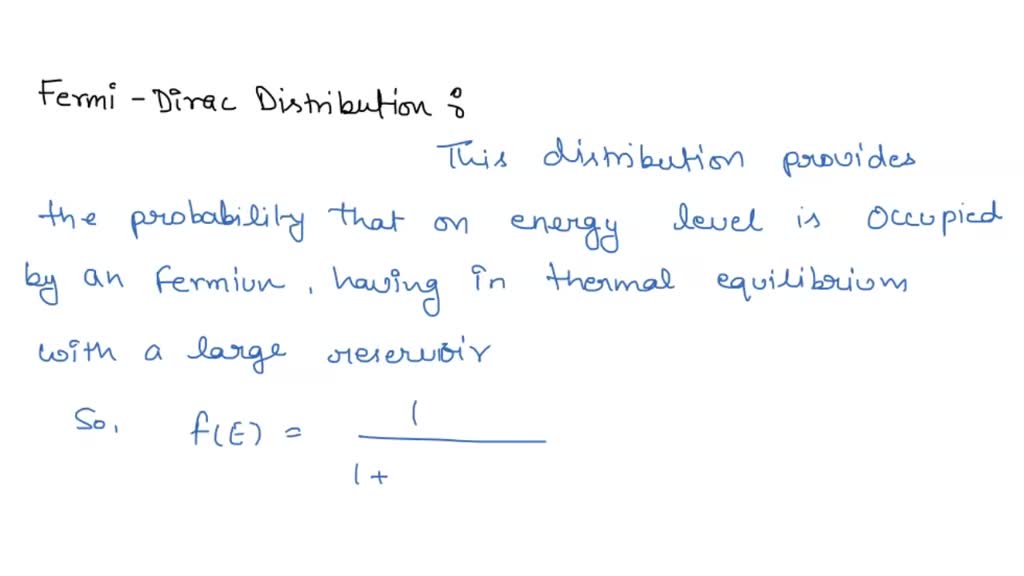 Fermi - Dirac Distribution :
This distribution provides
the probability that on energy level is occupied
by an fermiun, having in thermal equilibrium
with a large reservoir
So, f(E) = 1
1 +